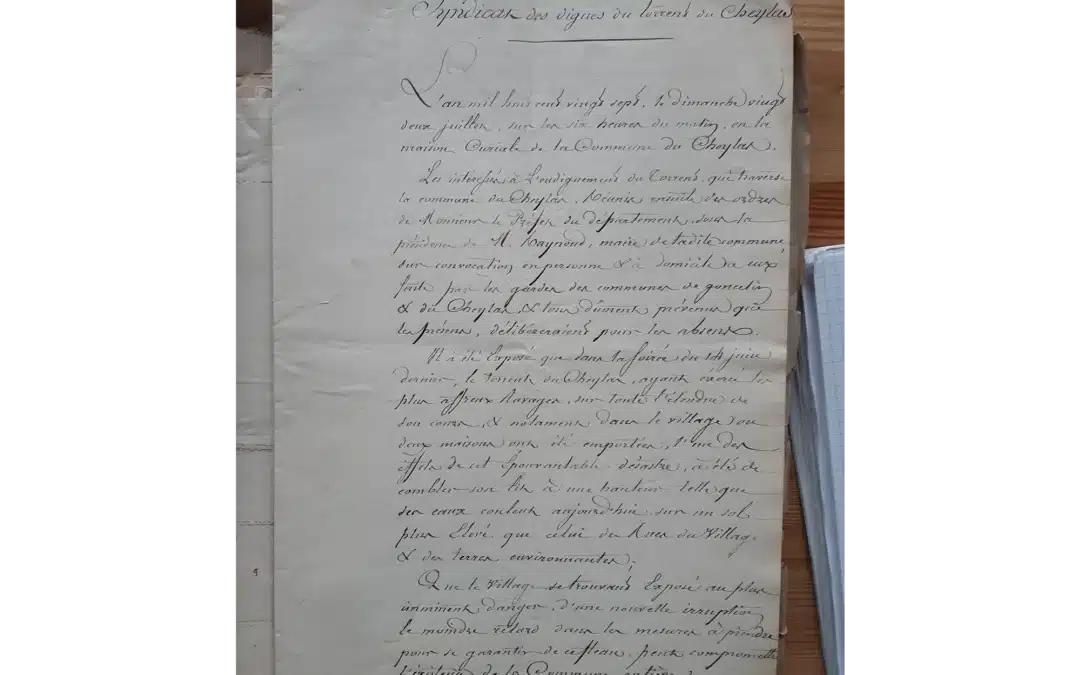 Syndicat des digues du torrent du Cheylas
L'an mil huit cent vingt sept, le dimanche vingt
deux juillet, sur les six heures du matin, en la
maison Curiale de la Commune du Cheylas.
Les intéressés à L'endiguement du Torrent, qui traverse
la commune du Cheylas, Réunis ensuite des ordres
de Monsieur le Préfet du département, sous la
présidence de M. Raymond, maire de ladite commune,
sur convocation en personne & à domicile a eux
faite par les gardes des communes de goncelin
& du Cheylas, & tous dûment prévenus que
les présens, délibéreraient pour les absens.
Il a été Exposé que dans la soirée du 14 juin
dernier, le torrent du Cheylas, ayant exercé les
plus affreux Ravages, sur toute l'étendue de
son cours, & notament dans le village ou
deux maisons ont été emportées, l'une des
effets de cet Epouvantable désastre, a été de
combler son lit à une hauteur telle que
ses eaux coulent aujourd'hui sur un sol
plus Elevé que celui des Rues du Village
& des terres environnantes;
Que le Village se trouvant Exposé au plus
imminent danger, d'une nouvelle irruption
le moindre retard dans les mesures à prendre
pour se garantir de ce fléau, peut compromettre
l'existence de la Commune entière;